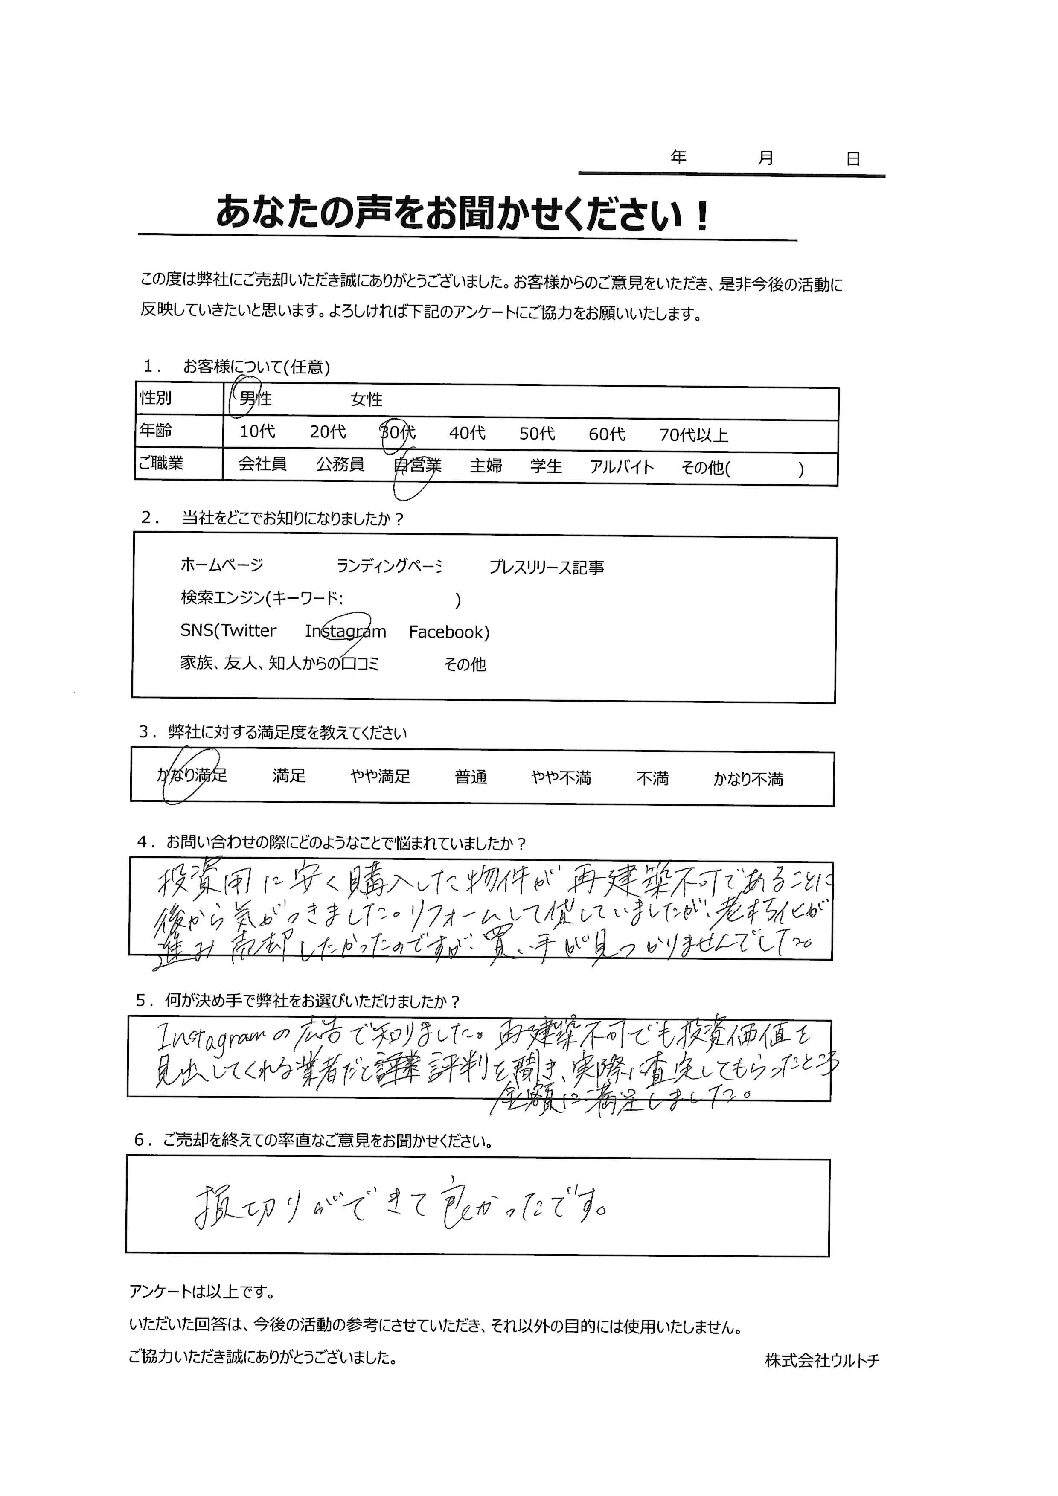 年 月 日
あなたの声をお聞かせください！
この度は弊社にご売却いただき誠にありがとうございました。お客様からのご意見をいただき、是非今後の活動に
反映していきたいと思います。よろしければ下記のアンケートにご協力をお願いいたします。
１． お客様について(任意)
性別 男性 女性
年齢 10代 20代 30代 40代 50代 60代 70代以上
ご職業 会社員 公務員 自営業 主婦 学生 アルバイト その他( )
２． 当社をどこでお知りになりましたか？
ホームページ ランディングページ プレスリリース記事
検索エンジン(キーワード: )
SNS(Twitter Instagram Facebook)
家族、友人、知人からの口コミ その他
３．弊社に対する満足度を教えてください
かなり満足 満足 やや満足 普通 やや不満 不満 かなり不満
４．お問い合わせの際にどのようなことで悩まれていましたか？
投資用に安く購入した物件が再建築不可であることに
後から気がつきました。リフォームして貸していましたが、老朽化が
進み売却したかったのですが、買い手が見つかりませんでした。
５．何が決め手で弊社をお選びいただけましたか？
Instagramの広告で知りました。再建築不可でも投資価値を
見出してくれる業者だと評判を聞き、実際に査定してもらったところ
金額に満足しました。
６．ご売却を終えての率直なご意見をお聞かせください。
損切りができて良かったです。
アンケートは以上です。
いただいた回答は、今後の活動の参考にさせていただき、それ以外の目的には使用いたしません。
ご協力いただき誠にありがとうございました。 株式会社ウルトチ